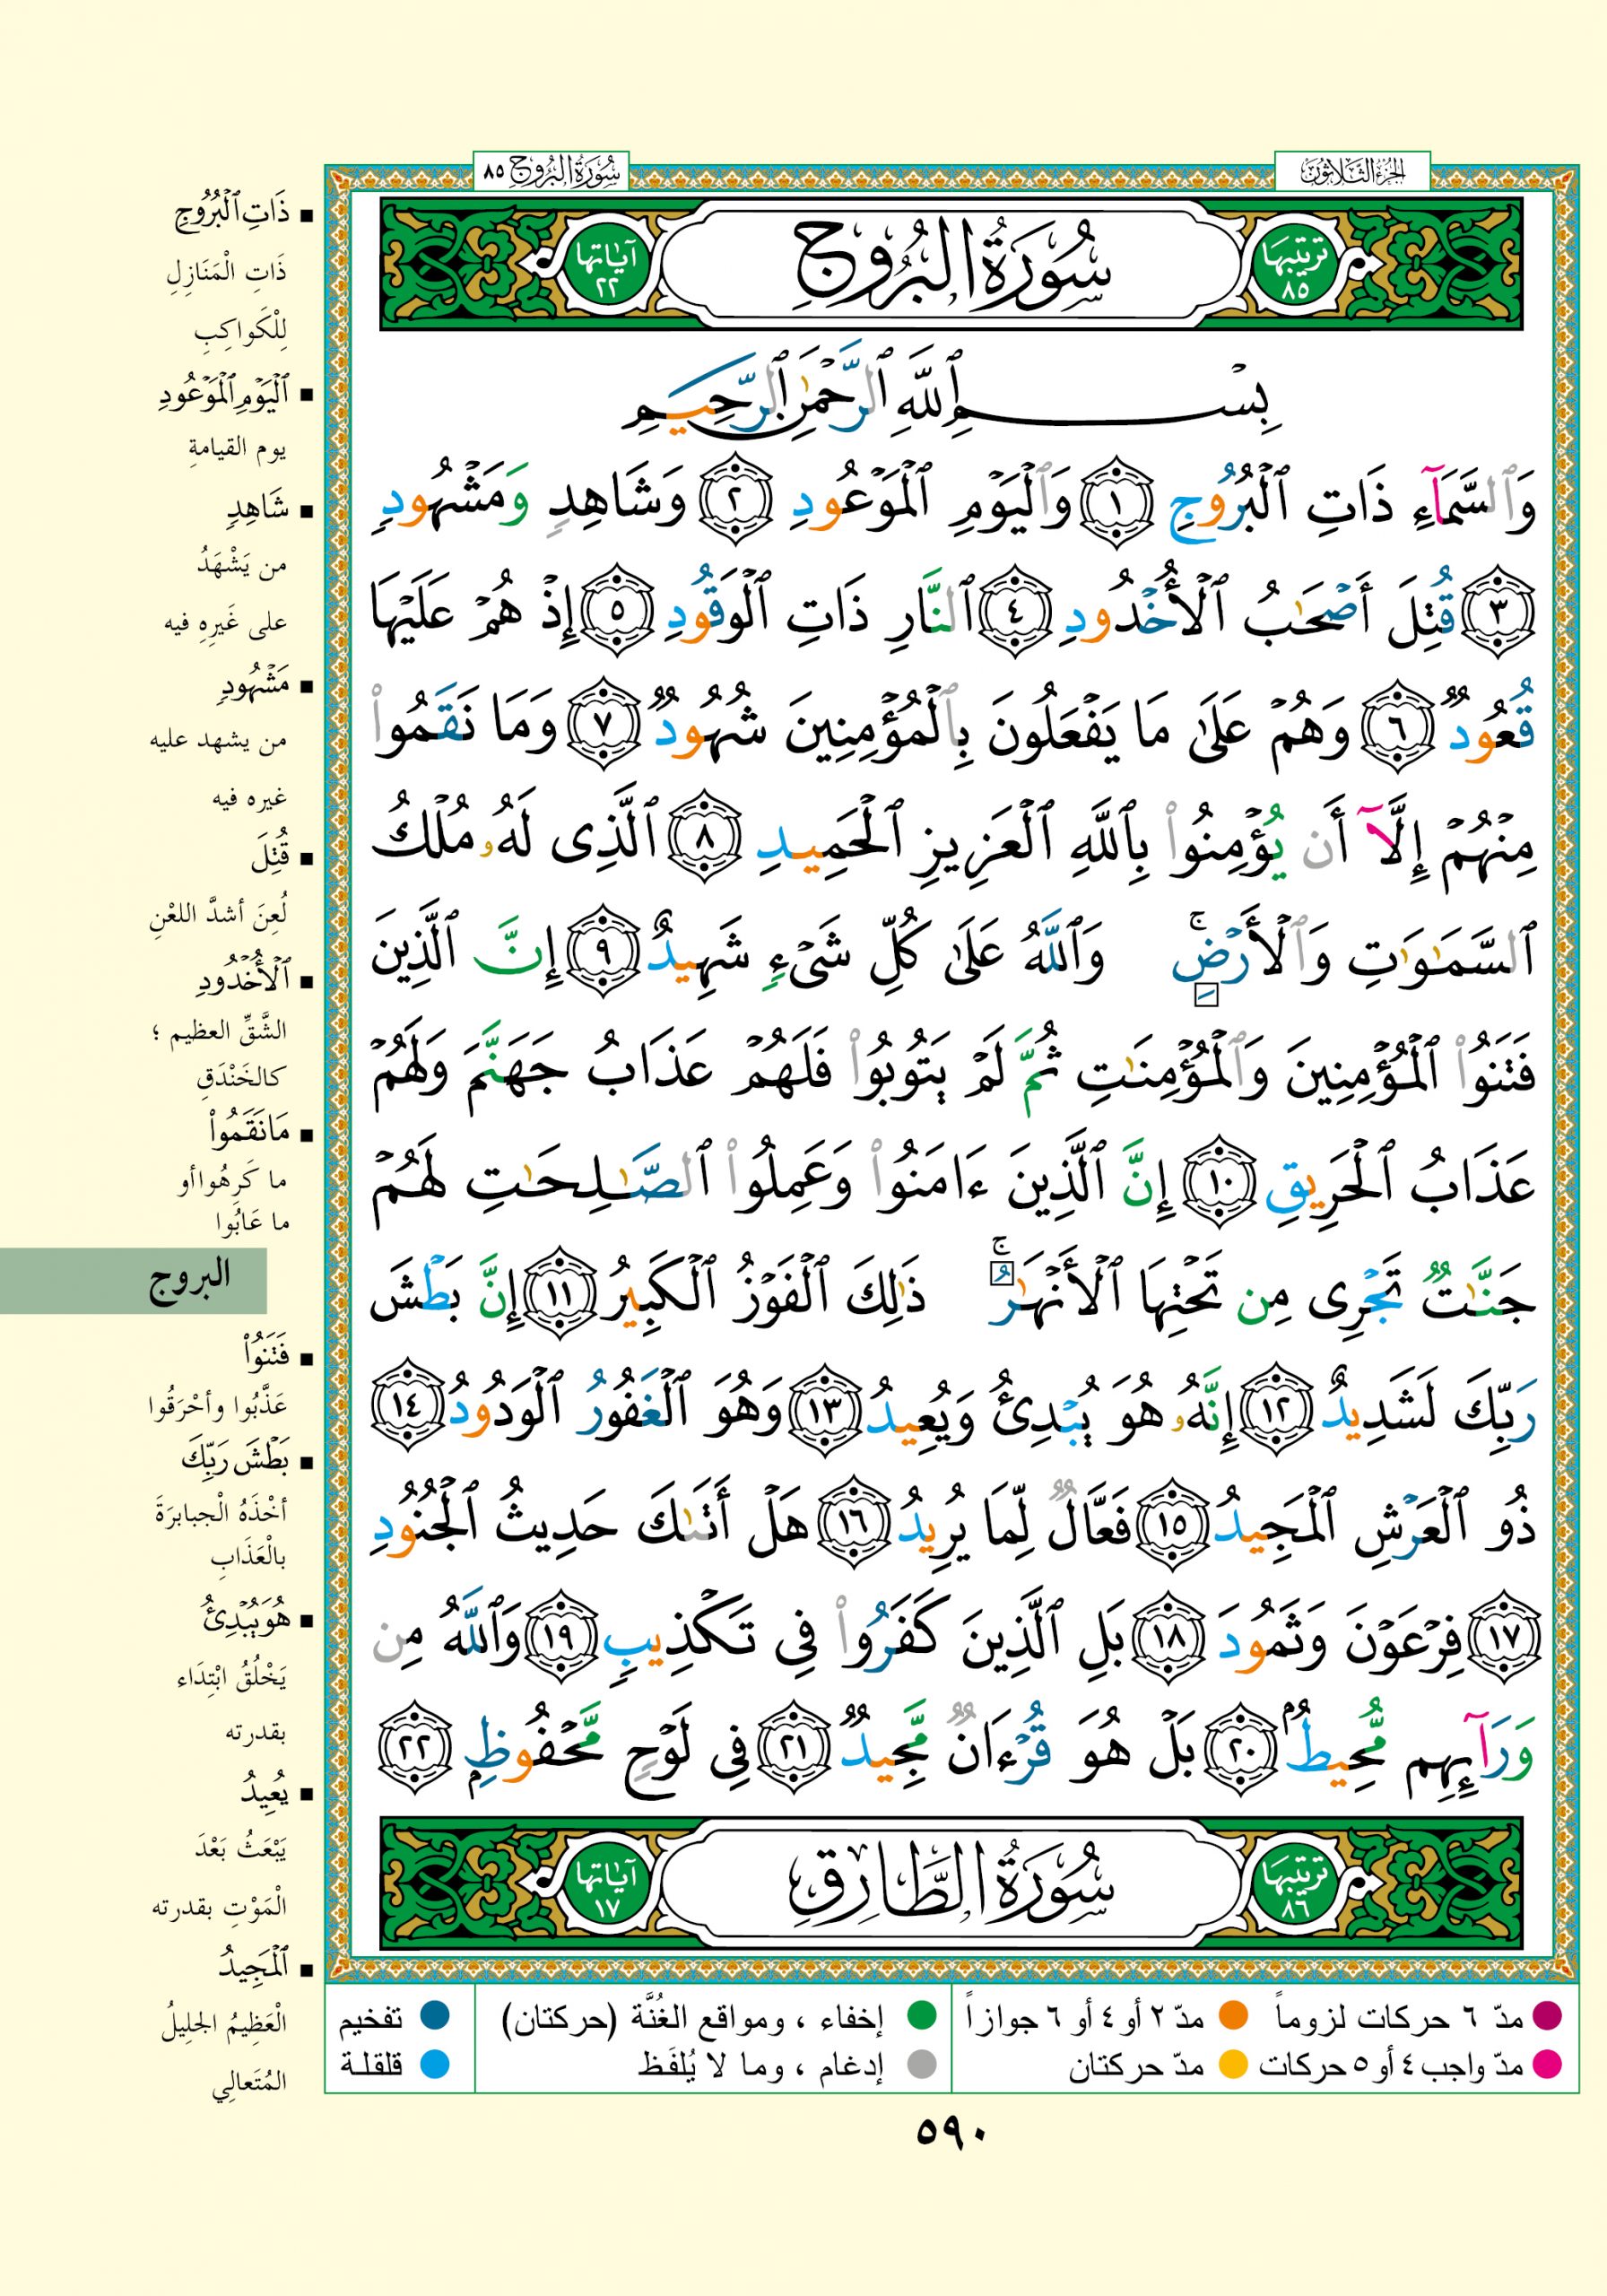 الجزء الثلاثون
سورة البروج ٨٥
ترتيبها ٨٥
سُورَةُ البُرُوجِ
آياتها ٢٢
بِسْمِ ٱللَّهِ ٱلرَّحْمَٰنِ ٱلرَّحِيمِ
وَٱلسَّمَآءِ ذَاتِ ٱلْبُرُوجِ ١ وَٱلْيَوْمِ ٱلْمَوْعُودِ ٢ وَشَاهِدٍ وَمَشْهُودٍ
٣ قُتِلَ أَصْحَٰبُ ٱلْأُخْدُودِ ٤ ٱلنَّارِ ذَاتِ ٱلْوَقُودِ ٥ إِذْ هُمْ عَلَيْهَا
قُعُودٌ ٦ وَهُمْ عَلَىٰ مَا يَفْعَلُونَ بِٱلْمُؤْمِنِينَ شُهُودٌ ٧ وَمَا نَقَمُوا۟
مِنْهُمْ إِلَّآ أَن يُؤْمِنُوا۟ بِٱللَّهِ ٱلْعَزِيزِ ٱلْحَمِيدِ ٨ ٱلَّذِى لَهُۥ مُلْكُ
ٱلسَّمَٰوَٰتِ وَٱلْأَرْضِ ۚ وَٱللَّهُ عَلَىٰ كُلِّ شَىْءٍ شَهِيدٌ ٩ إِنَّ ٱلَّذِينَ
فَتَنُوا۟ ٱلْمُؤْمِنِينَ وَٱلْمُؤْمِنَٰتِ ثُمَّ لَمْ يَتُوبُوا۟ فَلَهُمْ عَذَابُ جَهَنَّمَ وَلَهُمْ
عَذَابُ ٱلْحَرِيقِ ١٠ إِنَّ ٱلَّذِينَ ءَامَنُوا۟ وَعَمِلُوا۟ ٱلصَّٰلِحَٰتِ لَهُمْ
جَنَّٰتٌ تَجْرِى مِن تَحْتِهَا ٱلْأَنْهَٰرُ ۚ ذَٰلِكَ ٱلْفَوْزُ ٱلْكَبِيرُ ١١ إِنَّ بَطْشَ
رَبِّكَ لَشَدِيدٌ ١٢ إِنَّهُۥ هُوَ يُبْدِئُ وَيُعِيدُ ١٣ وَهُوَ ٱلْغَفُورُ ٱلْوَدُودُ ١٤
ذُو ٱلْعَرْشِ ٱلْمَجِيدُ ١٥ فَعَّالٌ لِّمَا يُرِيدُ ١٦ هَلْ أَتَىٰكَ حَدِيثُ ٱلْجُنُودِ
١٧ فِرْعَوْنَ وَثَمُودَ ١٨ بَلِ ٱلَّذِينَ كَفَرُوا۟ فِى تَكْذِيبٍ ١٩ وَٱللَّهُ مِن
وَرَآئِهِم مُّحِيطٌۢ ٢٠ بَلْ هُوَ قُرْءَانٌ مَّجِيدٌ ٢١ فِى لَوْحٍ مَّحْفُوظٍۭ ٢٢
ترتيبها ٨٦
سُورَةُ الطَّارِقِ
آياتها ١٧
ذَاتِ ٱلْبُرُوجِ
ذَاتِ الْمَنَازِلِ
لِلْكَواكِبِ
ٱلْيَوْمِ ٱلْمَوْعُودِ
يوم القيامةِ
شَاهِدٍ
من يَشْهَدُ
على غَيرِهِ فيه
مَشْهُودٍ
من يشهد عليه
غيره فيه
قُتِلَ
لُعِنَ أشدَّ اللعْنِ
ٱلْأُخْدُودِ
الشَّقِّ العظيم ؛
كالخَنْدَقِ
مَا نَقَمُوا۟
ما كَرِهُوا أو
ما عَابُوا
البروج
فَتَنُوا۟
عَذَّبُوا وأحْرَقُوا
بَطْشَ رَبِّكَ
أخْذَهُ الْجبابرَةَ
بالْعَذَابِ
هُوَ يُبْدِئُ
يَخْلُقُ ابْتِدَاء
بقدرته
يُعِيدُ
يَبْعَثُ بَعْدَ
الْمَوْتِ بقدرته
ٱلْمَجِيدُ
الْعَظِيمُ الجلِيلُ
المُتَعالِي
مدّ ٦ حركات لزوماً مدّ ٢ أو ٤ أو ٦ جوازاً إخفاء ، ومواقع الغُنَّة (حركتان) تفخيم
مدّ واجب ٤ أو ٥ حركات مدّ حركتان إدغام ، وما لا يُلفَظ قلقلة
٥٩٠